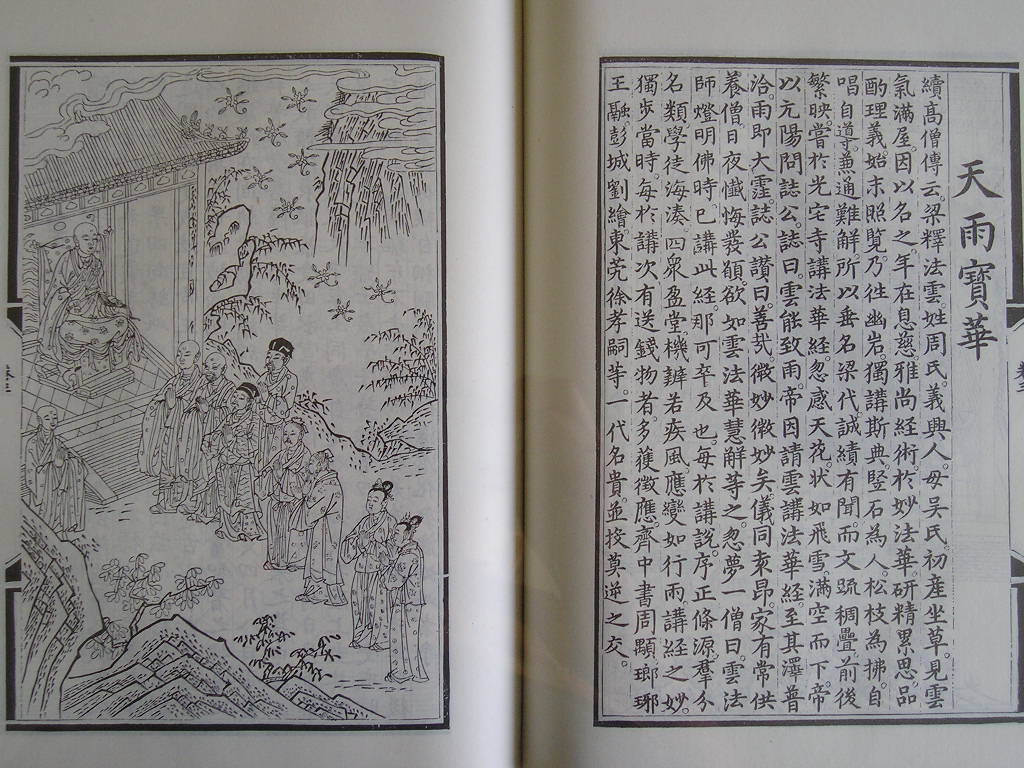 天雨寶華
續高僧傳云。梁釋法雲姓周氏。義興人。母吳氏。初產坐草。見雲
氣滿屋。因以名之。年在息慈。雅尚經術。於妙法華。研精累思。品
酌理義。始末照覽。乃往幽岩。獨講斯典。堅石為人。松枝為拂。自
唱自導。兼通難解。所以垂名梁代。誠績有聞。而文疏稠疊。前後
繁映。嘗於光宅寺講法華經。忽感天花。狀如飛雪。滿空而下。帝
以亢陽問誌公。誌曰。雲能致雨。帝因請雲講法華經。至其澤普
洽。雨即大霔。誌公讚曰。善哉。微妙微妙矣。儀同袁昂。家有常供
養僧。日夜懺悔發願。欲如雲法華慧解等之。忽夢一僧曰。雲法
師燈明佛時。已講此經。那可卒及也。每於講說。序正條源。羣分
名類。學徒海湊。四眾盈堂。機辯若疾風。應變如行雨。講經之妙。
獨步當時。每於講次。有送錢物者。多獲徵應。齊中書周顒。瑯琊
王融。彭城劉繪。東莞徐孝嗣等。一代名貴。並投莫逆之交。